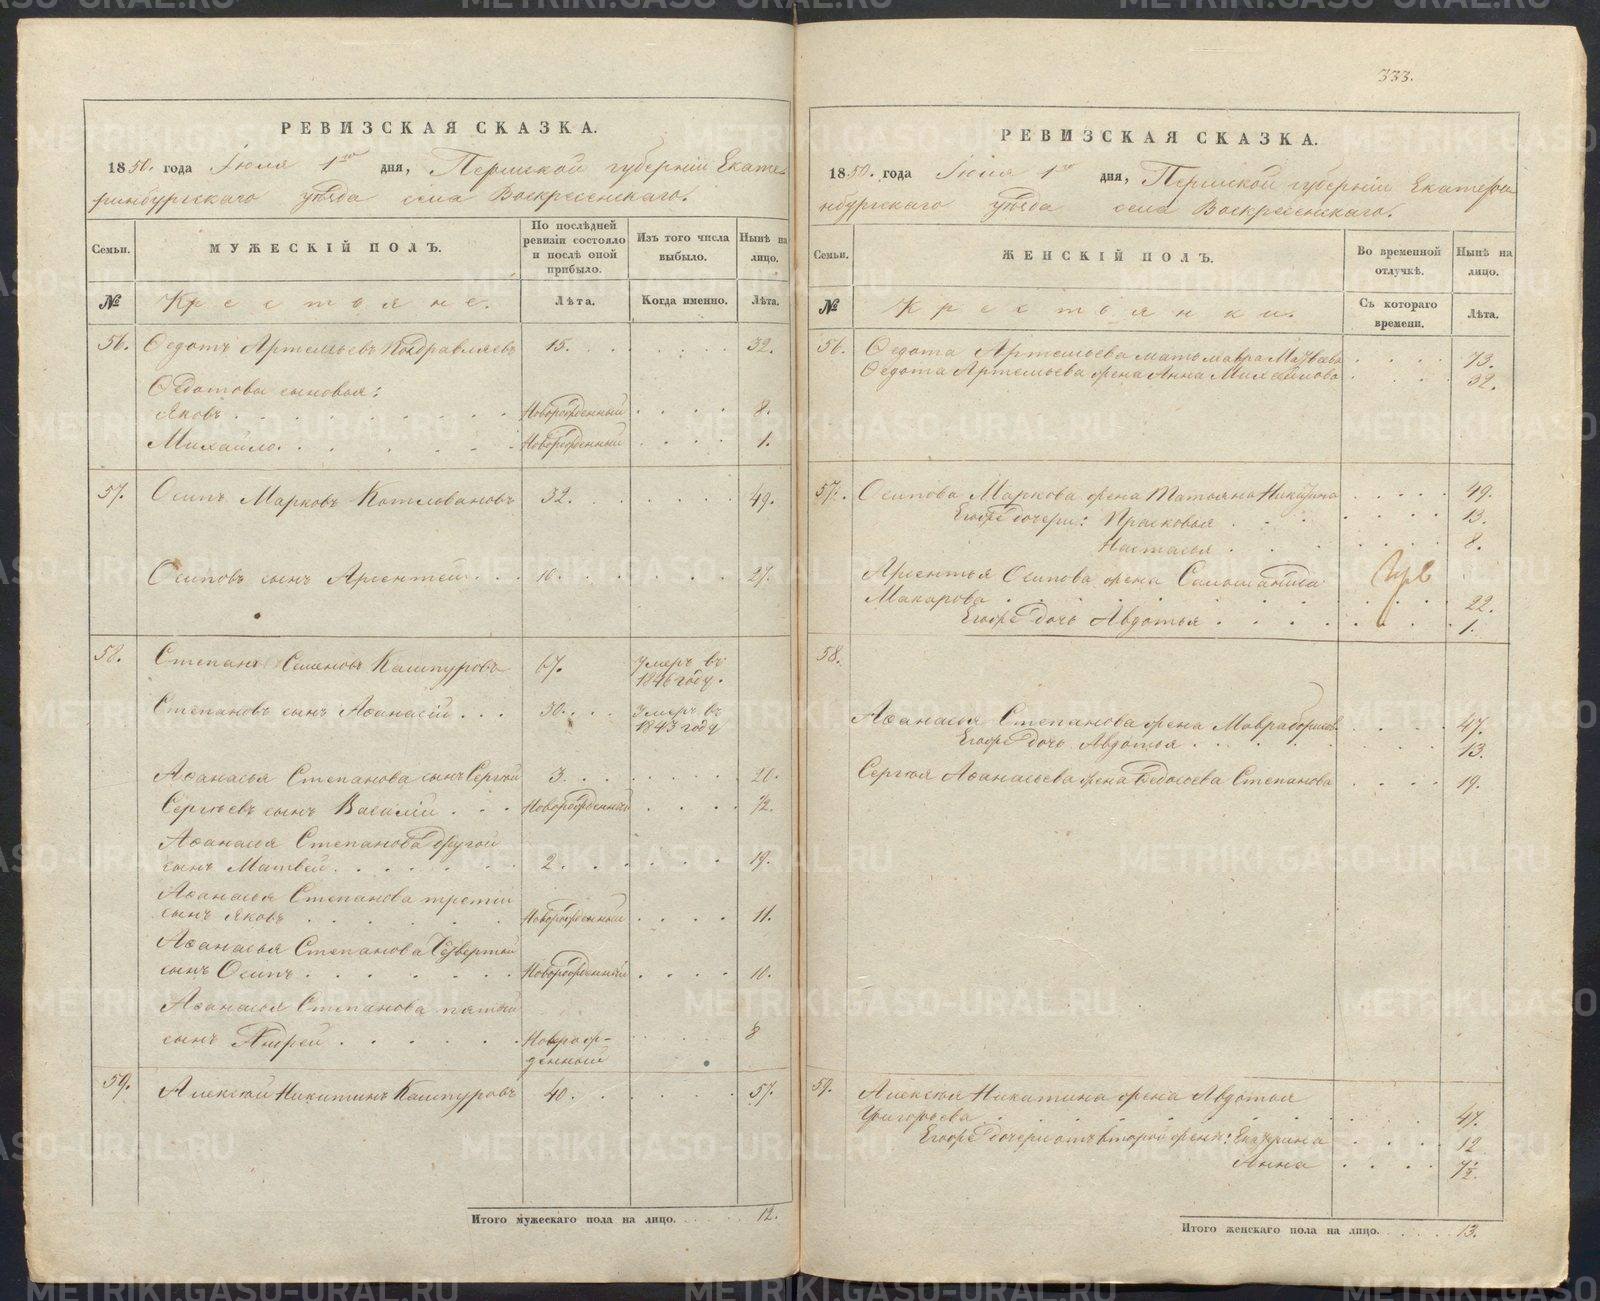 333.
РЕВИЗСКАЯ СКАЗКА.
1850. года Іюля 1го дня, Пермской губерніи Екате-
ринбургскаго уѣзда села Воскресенскаго.
Семьи.
МУЖЕСКІЙ ПОЛЪ.
По послѣдней ревизіи состояло и послѣ оной прибыло.
Изъ того числа выбыло.
Нынѣ на лицо.
№
Крестьяне.
Лѣта.
Когда именно.
Лѣта.
56. Ѳедотъ Артемьевъ Поздравляевъ 15. 32.
Ѳедотовы сыновья:
Яковъ Новорожденный 8.
Михайло Новорожденный 1.
57. Осипъ Марковъ Котловановъ 32. 49.
Осиповъ сынъ Арсентей 10. 27.
58. Степанъ Семеновъ Кашпуровъ 67. Умеръ въ 1846 году.
Степановъ сынъ Аѳанасій 30. Умеръ въ 1843 году
Аѳанасья Степанова сынъ Сергѣй 3. 20.
Сергѣевъ сынъ Василій Новорожденный 1/2.
Аѳанасья Степанова другой
сынъ Матвей 2. 19.
Аѳанасья Степанова третій
сынъ Яковъ Новорожденный 11.
Аѳанасья Степанова Четвертый
сынъ Осипъ Новорожденный 10.
Аѳанасья Степанова пятый
сынъ Андрей Новорожденный 8
59. Алексѣй Никитинъ Кашпуровъ 40. 57.
Итого мужескаго пола на лицо. 12.
РЕВИЗСКАЯ СКАЗКА.
1850. года Іюля 1го дня, Пермской губерніи Екатери
нбургскаго уѣзда села Воскресенскаго.
Семьи.
ЖЕНСКІЙ ПОЛЪ.
Во временной отлучкѣ.
Нынѣ на лицо.
№
Крестьянки.
Съ котораго времени.
Лѣта.
56. Ѳедота Артемьева мать Мавра Матвѣева 73.
Ѳедота Артемьева жена Анна Михайлова 32.
57. Осипова Маркова жена Татьяна Никитина 49.
Его же дочери: Прасковья 13.
Настасья 8.
Арсентья Осипова жена Саломанида
Макарова 22.
Его же дочь Авдотья 1.
58.
Аѳанасья Степанова жена Мавра Борисова 47.
Его же дочь Авдотья 13.
Сергѣя Аѳанасьева жена Ѳедосьева Степанова 19.
59. Алексѣя Никитина жена Авдотья
Григорьева 47.
Его же дочери отъ второй жены: Екатерина 12
Анна 7 1/2.
Итого женскаго пола на лицо. 13.
METRIKI.GASO-URAL.RU